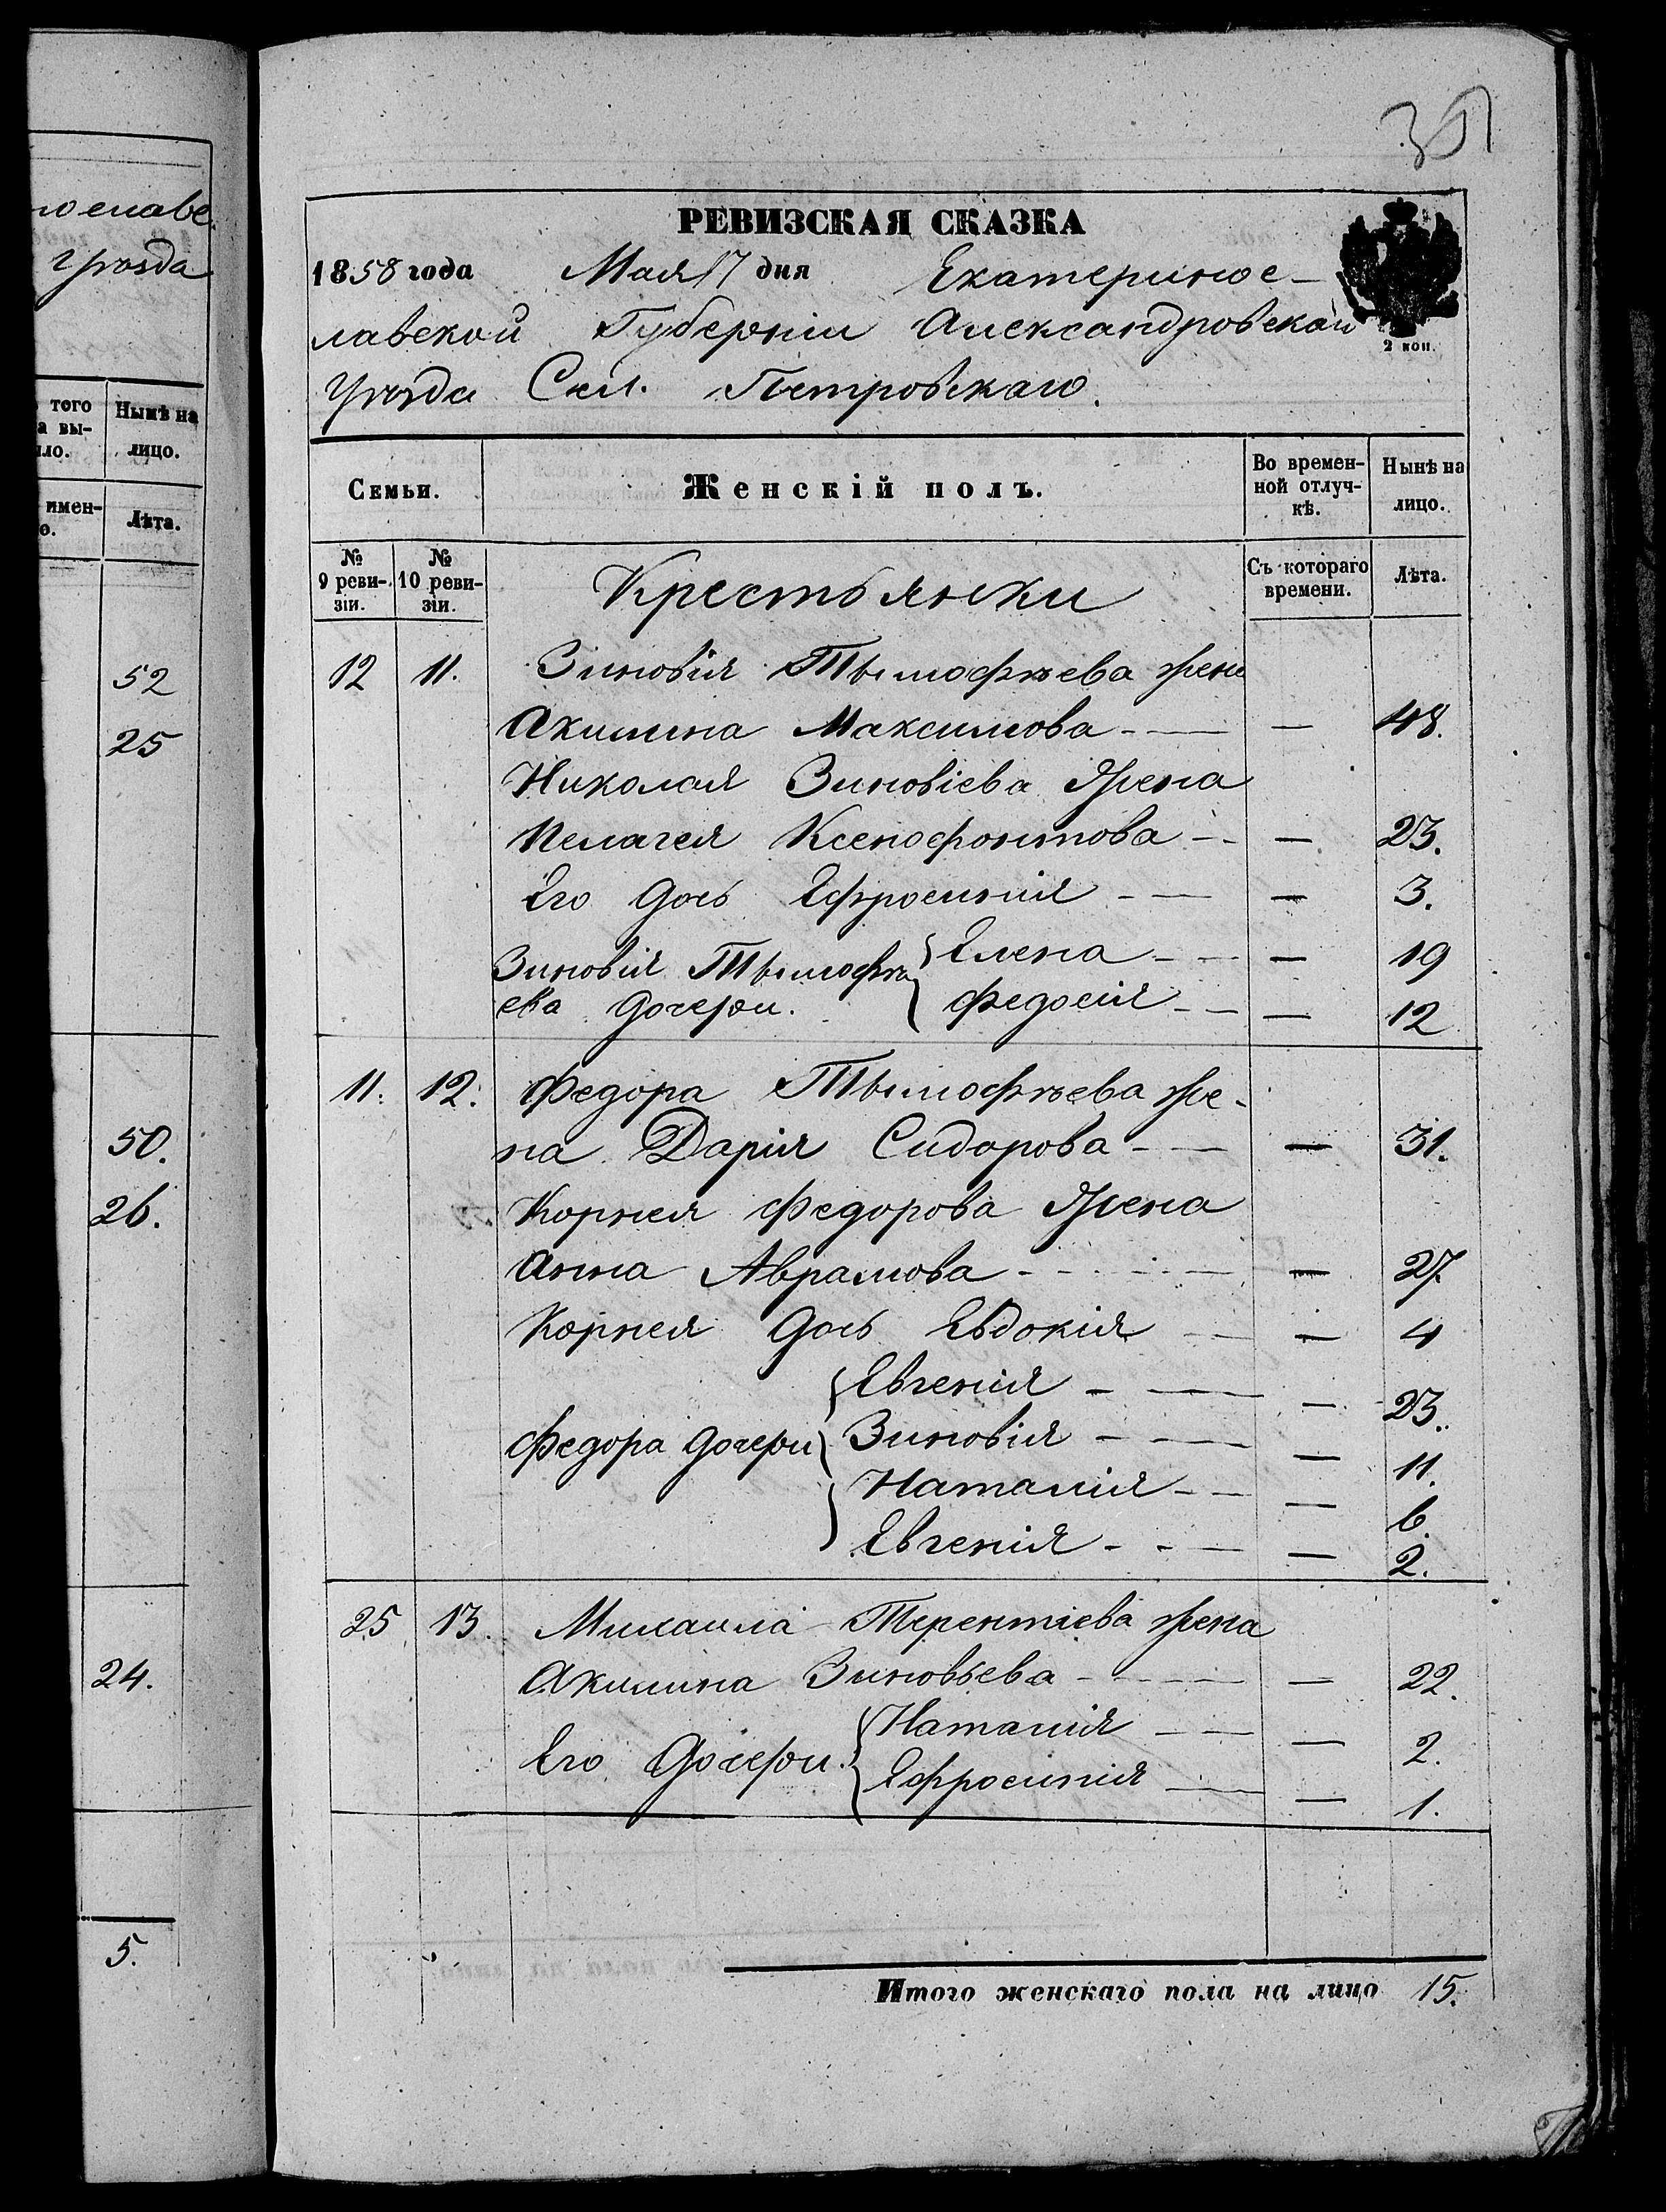 но славс
уѣзда
того
а вы-
ло.
Нынѣ на
лицо.
имен-
о.
Лѣта.
52
25
50.
26.
24.
5.
РЕВИЗСКАЯ СКАЗКА
1858 года Мая 17 дня Екатеринос-
лавской Губерніи Александровскаго
2 коп.
Уѣзда Сел. Петровскаго.
Семьи.
Женскій полъ.
Во времен-
ной отлуч-
кѣ.
Нынѣ на
лицо.
№
9 реви-
зіи.
№
10 реви-
зіи.
Крестьянки
Съ котораго
времени.
Лѣта.
12 11. Зиновія Тымофѣева жена
Акилина Максимова - — — 48.
Николая Зиновіева Жена
Пелагея Ксенофонтова - - — 23.
Его дочь Ефросинія - — — 3.
Зиновія Тымофѣ- { Елена - - — 19
ева дочери. { Федосія - — — 12
11. 12. Федора Тымофѣева же-
на Дарія Сидорова - — — 31.
Корнея Федорова Жена
Анна Аврамова - - - - — — 27.
Корнея дочь Евдокія — — 4
{ Евгенія - — — 23.
Федора дочери } Зиновія - — — 11.
{ Наталія - — — 6.
Евгенія - - — — 2.
25 13. Михаила Терентіева жена
Акилина Зиновьева - - - — — 22.
Его Дочери. { Наталія — — — 2.
{ Ефросинія — — — 1.
Итого женскаго пола на лицо 15.